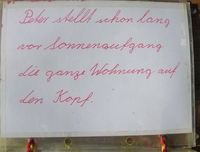 Peter stellt schon lang
vor Sonnenaufgang
die ganze Wohnung auf
den Kopf.